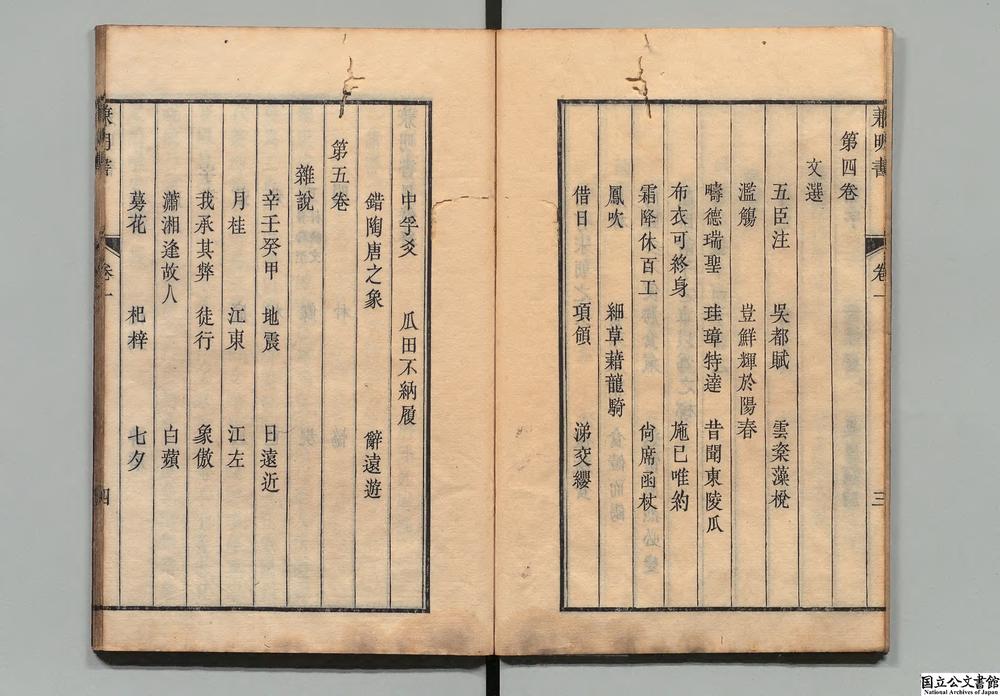 兼明書 卷一 三
第四卷
文選
五臣注 吳都賦 雲楶藻梲
濫觴 豈鮮輝於陽春
疇德瑞聖 珪璋特達 昔聞東陵瓜
布衣可終身 施已唯約
霜降休百工 尙席函杖
鳳吹 細草藉龍騎
借日 項領 涕交纓
中孚爻 瓜田不納履
錯陶唐之象 辭遠遊
第五卷
雜說
辛壬癸甲 地震 日遠近
月桂 江東 江左
我承其弊 徒行 象傲
瀟湘逢故人 白蘋
蕣花 杞梓 七夕
兼明書 卷一 四
国立公文書館
National Archives of Japan